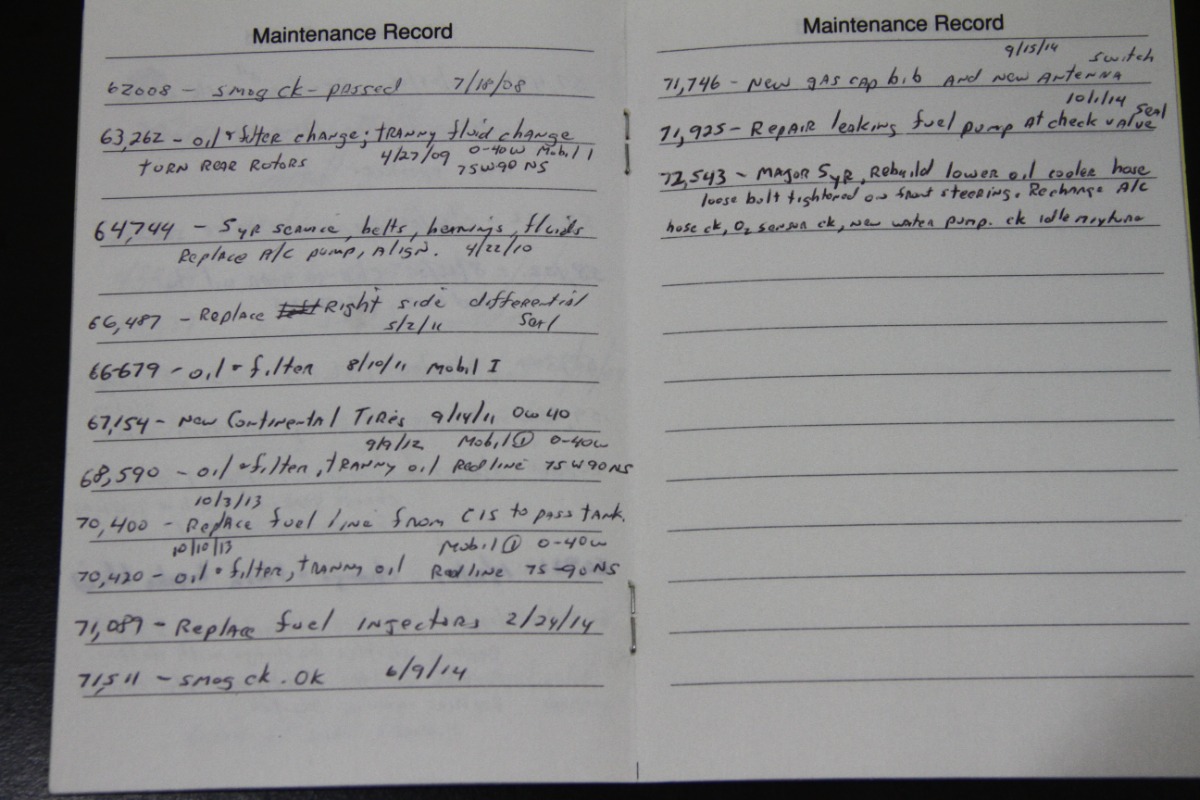 Maintenance Record
62008 - smog ck - passed 7/18/08
63,262 - oil & filter change; tranny fluid change
turn rear rotors 4/27/09 0-40w Mobil 1
75W90 NS
64,744 - 5yr service, belts, bearings, fluids
Replace A/C pump, Align. 4/22/10
66,487 - Replace Right side differential
5/2/11 Seal
66679 - oil & filter 8/10/11 Mobil I
67,154 - New Continental Tires 9/14/11 0w40
9/9/12 Mobil ① 0-40w
68,590 - oil & filter, tranny oil Redline 75W90NS
10/3/13
70,400 - Replace fuel line from CIS to pass tank.
10/10/13 Mobil ① 0-40w
70,420 - oil & filter, tranny oil Redline 75-90NS
71,089 - Replace fuel injectors 2/24/14
71,511 - smog ck. OK 6/9/14
Maintenance Record
9/15/14 switch
71,746 - New gas cap bib and new antenna
10/1/14 Seal
71,925 - Repair leaking fuel pump at check valve
72,543 - Major 5yr, Rebuild lower oil cooler hose
loose bolt tightened on front steering. Recharge A/C
hose ck, O2 sensor ck, new water pump. ck idle mixture